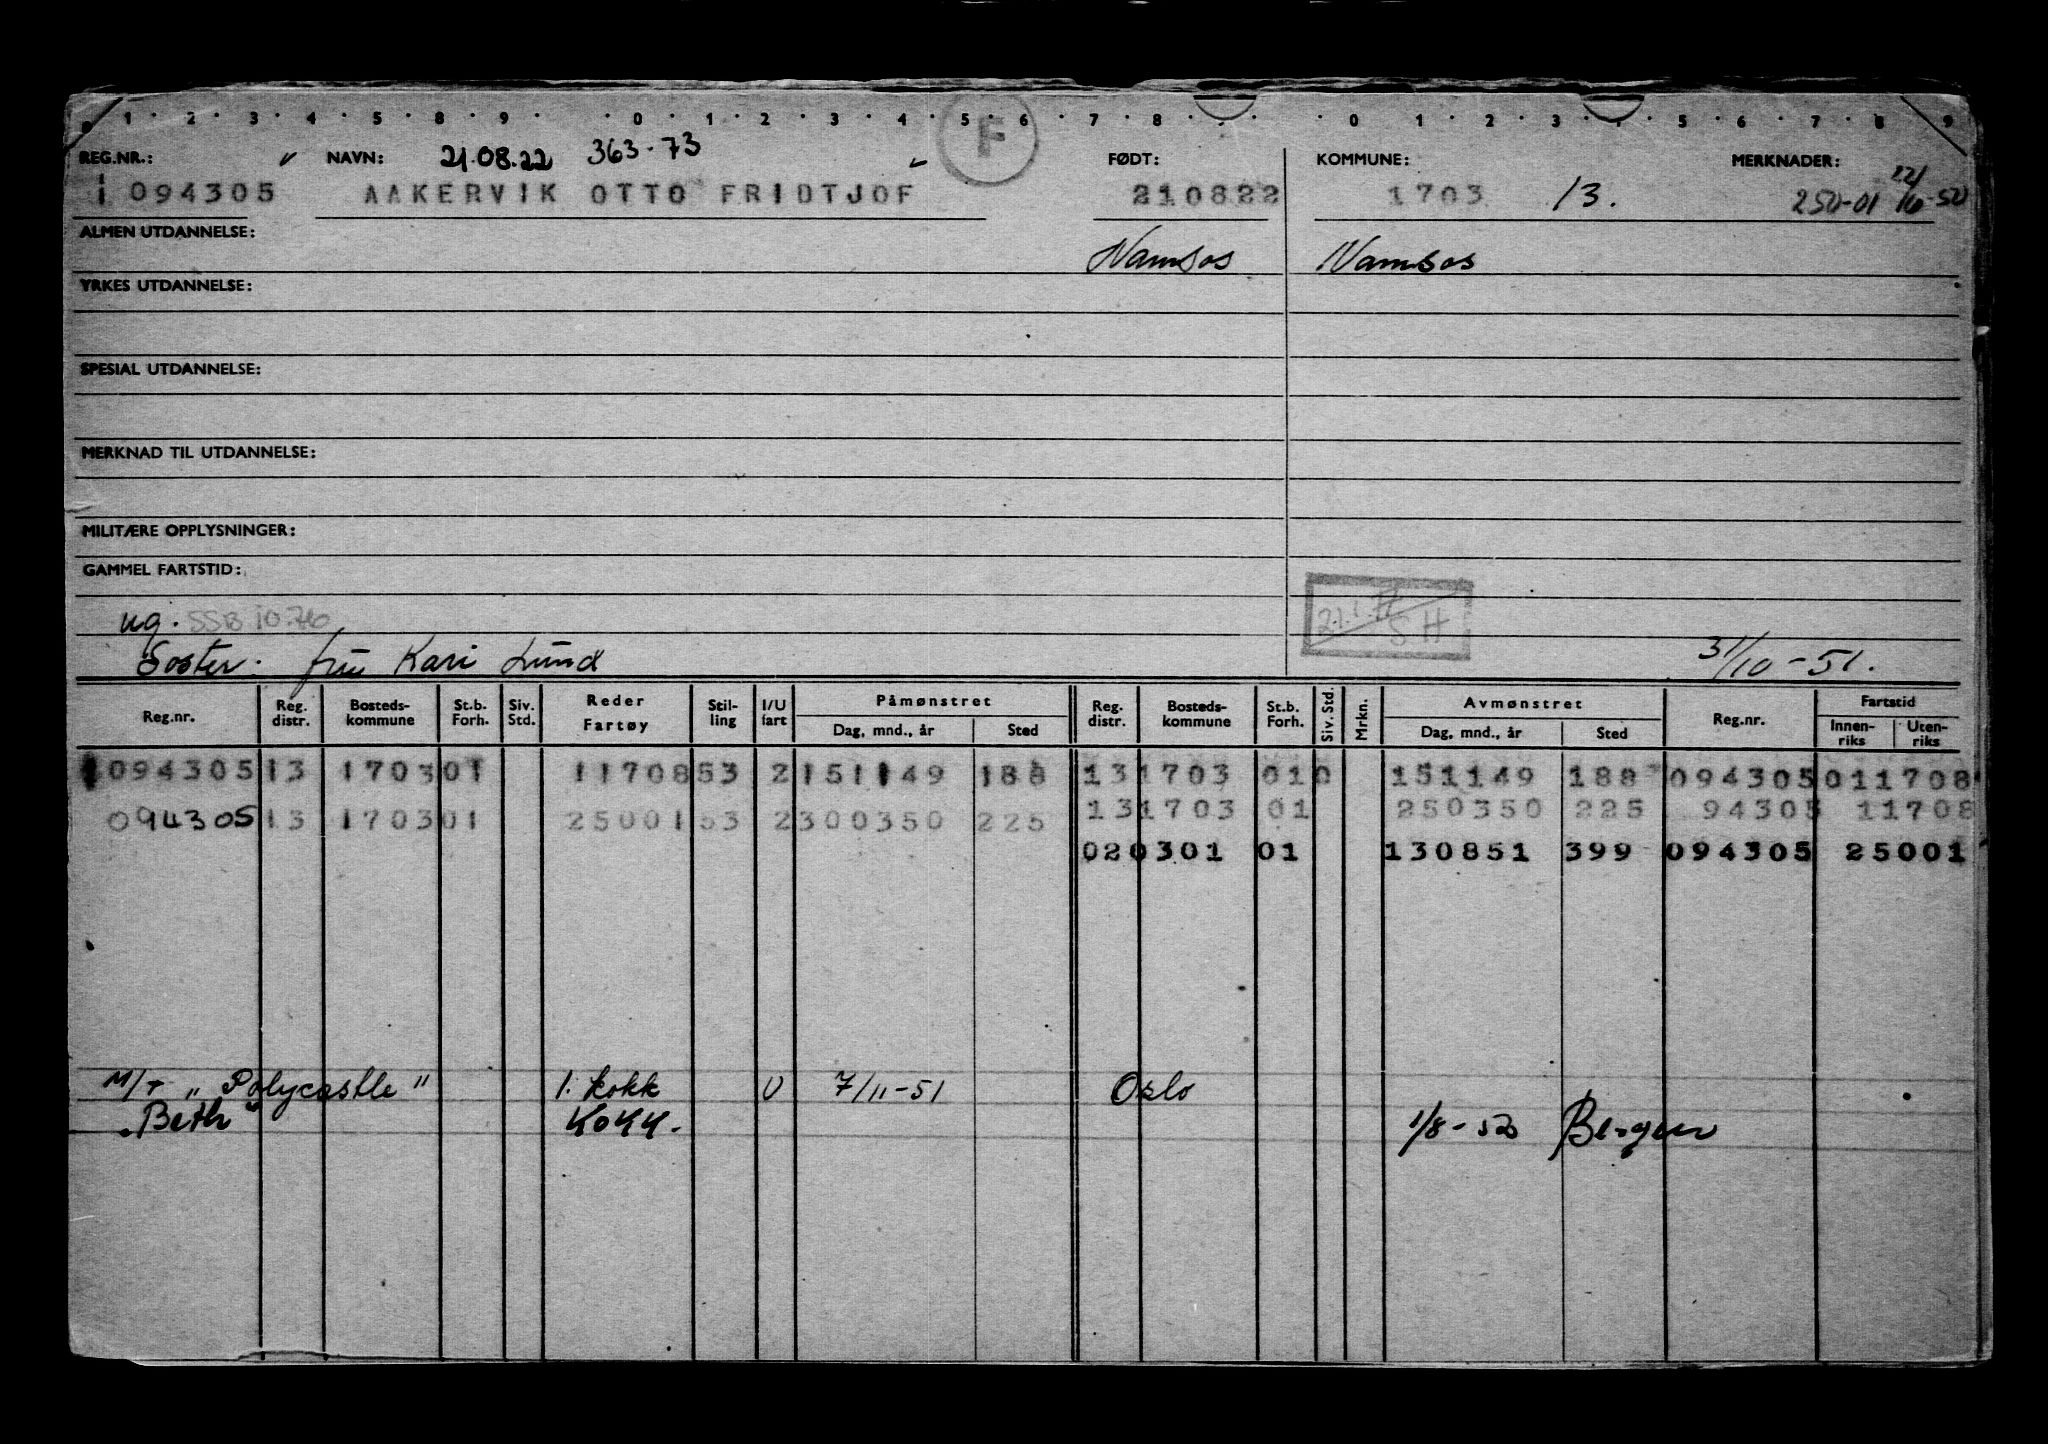 1 2 3 4 5 8 9 0 1 2 3 4 5 6 7 8 0 1 2 3 5 6 7 8 9
REG.NR.: NAVN: 21.08.22 363-73 F FØDT: KOMMUNE: MERKNADER:
094305 AAKERVIK OTTO FRIDTJOF 210822 1703 13. 250-01
ALMEN UTDANNELSE: Namsos Namsos
YRKES UTDANNELSE:
SPESIAL UTDANNELSE:
MERKNAD TIL UTDANNELSE:
MILITÆRE OPPLYSNINGER:
GAMMEL FARTSTID:
ug. SSB 10.76 SH
Søster. fru Kari Lund 31/10-51.
Reg.nr. Reg. distr. Bosteds-kommune St.b. Forh. Siv. Std. Reder Fartøy Stil-ling I/U fart Påmønstret Dag, mnd., år Sted Reg. distr. Bosteds-kommune St.b. Forh. Siv. Std. Mrkn. Avmønstret Dag, mnd., år Sted Reg.nr. Fartstid Innen-riks Uten-riks
094305 13 1703 01 11708 53 2 151149 188 13 1703 01 0 151149 188 094305 011708
094305 13 1703 01 25001 53 2 300350 225 13 1703 01 250350 225 94305 11708
02 0301 01 130851 399 094305 25001
M/T "Polycastle" 1. kokk U 7/11-51 Oslo
"Beth" Kokk. 1/8-53 Bergen